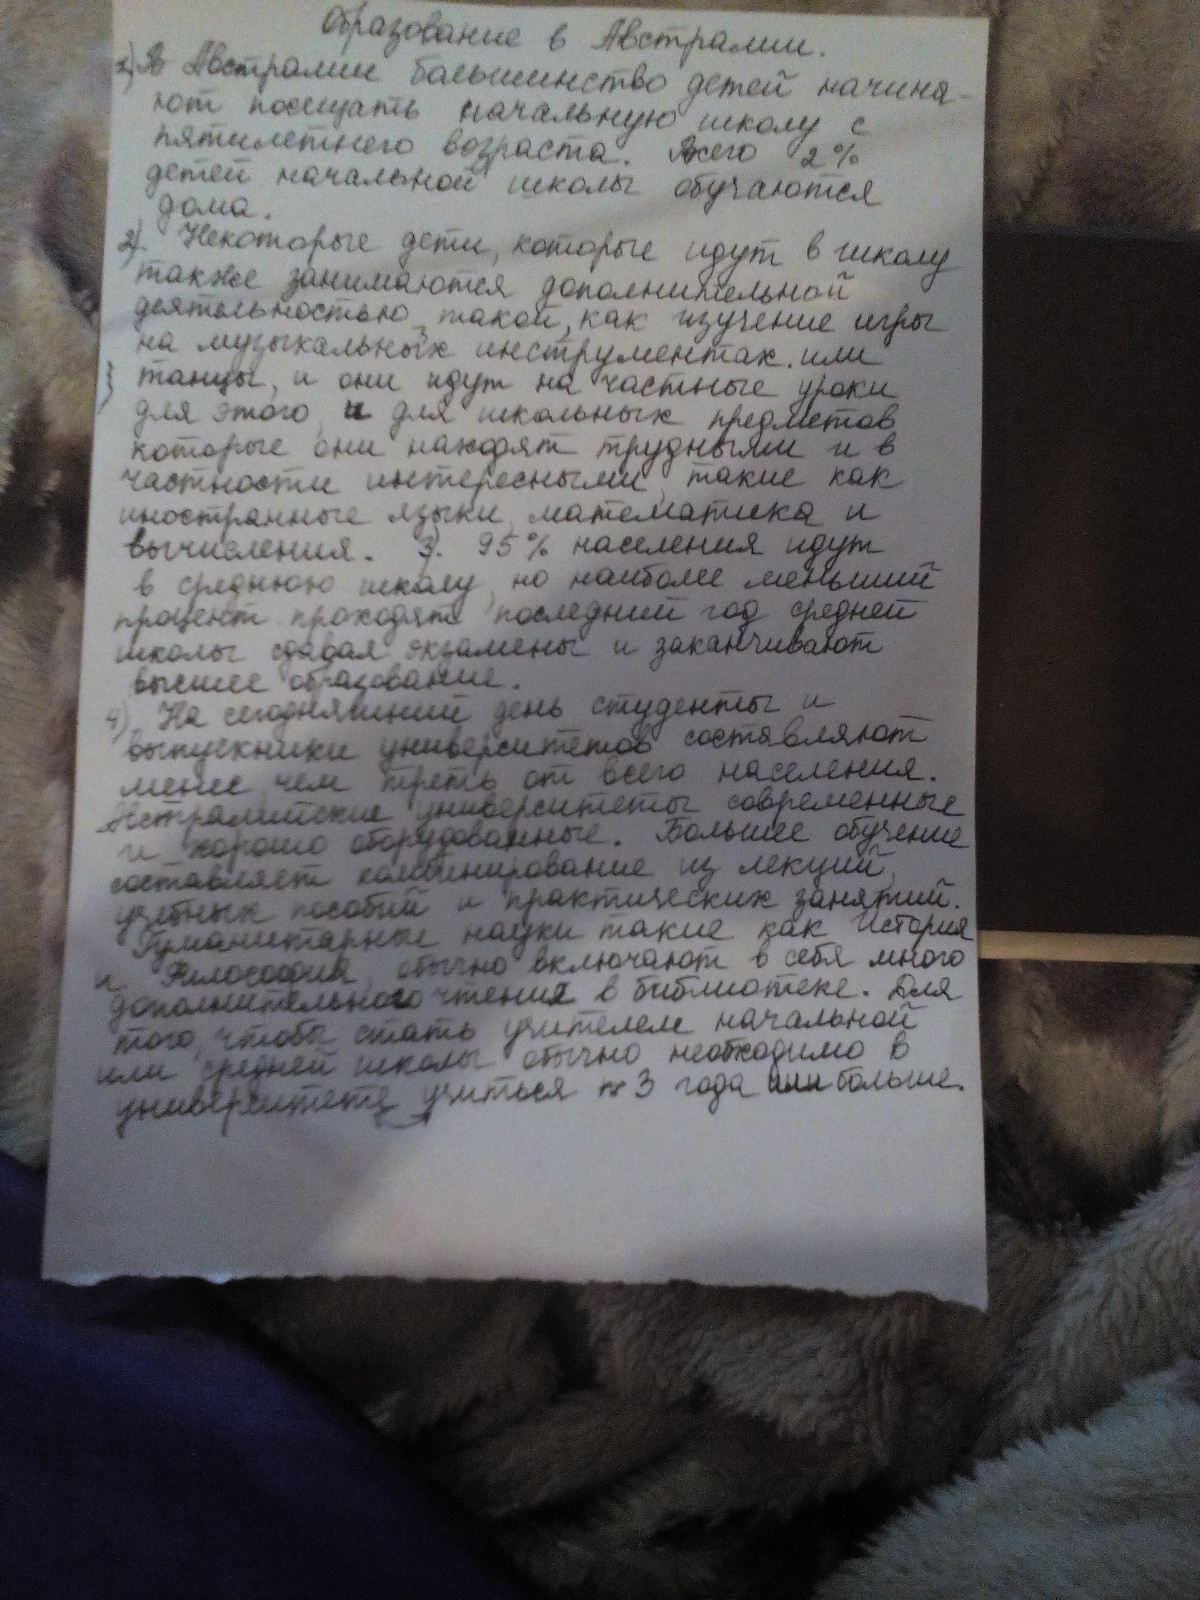 Образование в Австралии.
1) В Австралии большинство детей начина-
ют посещать начальную школу с
пятилетнего возраста. Всего 2%
детей начальной школы обучаются
дома.
2). Некоторые дети, которые идут в школу
также занимаются дополнительной
деятельностью, такой, как изучение игры
на музыкальных инструментах или
танцы, и они идут на частные уроки
для этого, и для школьных предметов
которые они находят трудными и в
частности интересными, такие как
иностранные языки, математика и
вычисления. 3. 95% населения идут
в среднюю школу, но наиболее меньший
процент проходят последний год средней
школы сдавая экзамены и заканчивают
высшее образование.
4) На сегодняшний день студенты и
выпускники университетов составляют
менее чем треть от всего населения.
Австралийские университеты современные
и хорошо оборудованные. Большее обучение
составляет комбинирование из лекций,
учебных пособий и практических занятий.
Гуманитарные науки такие как История
и Философия, обычно включают в себя много
дополнительного чтения в библиотеке. Для
того, чтобы стать учителем начальной
или средней школы обычно необходимо в
университете учиться 3 года или больше.